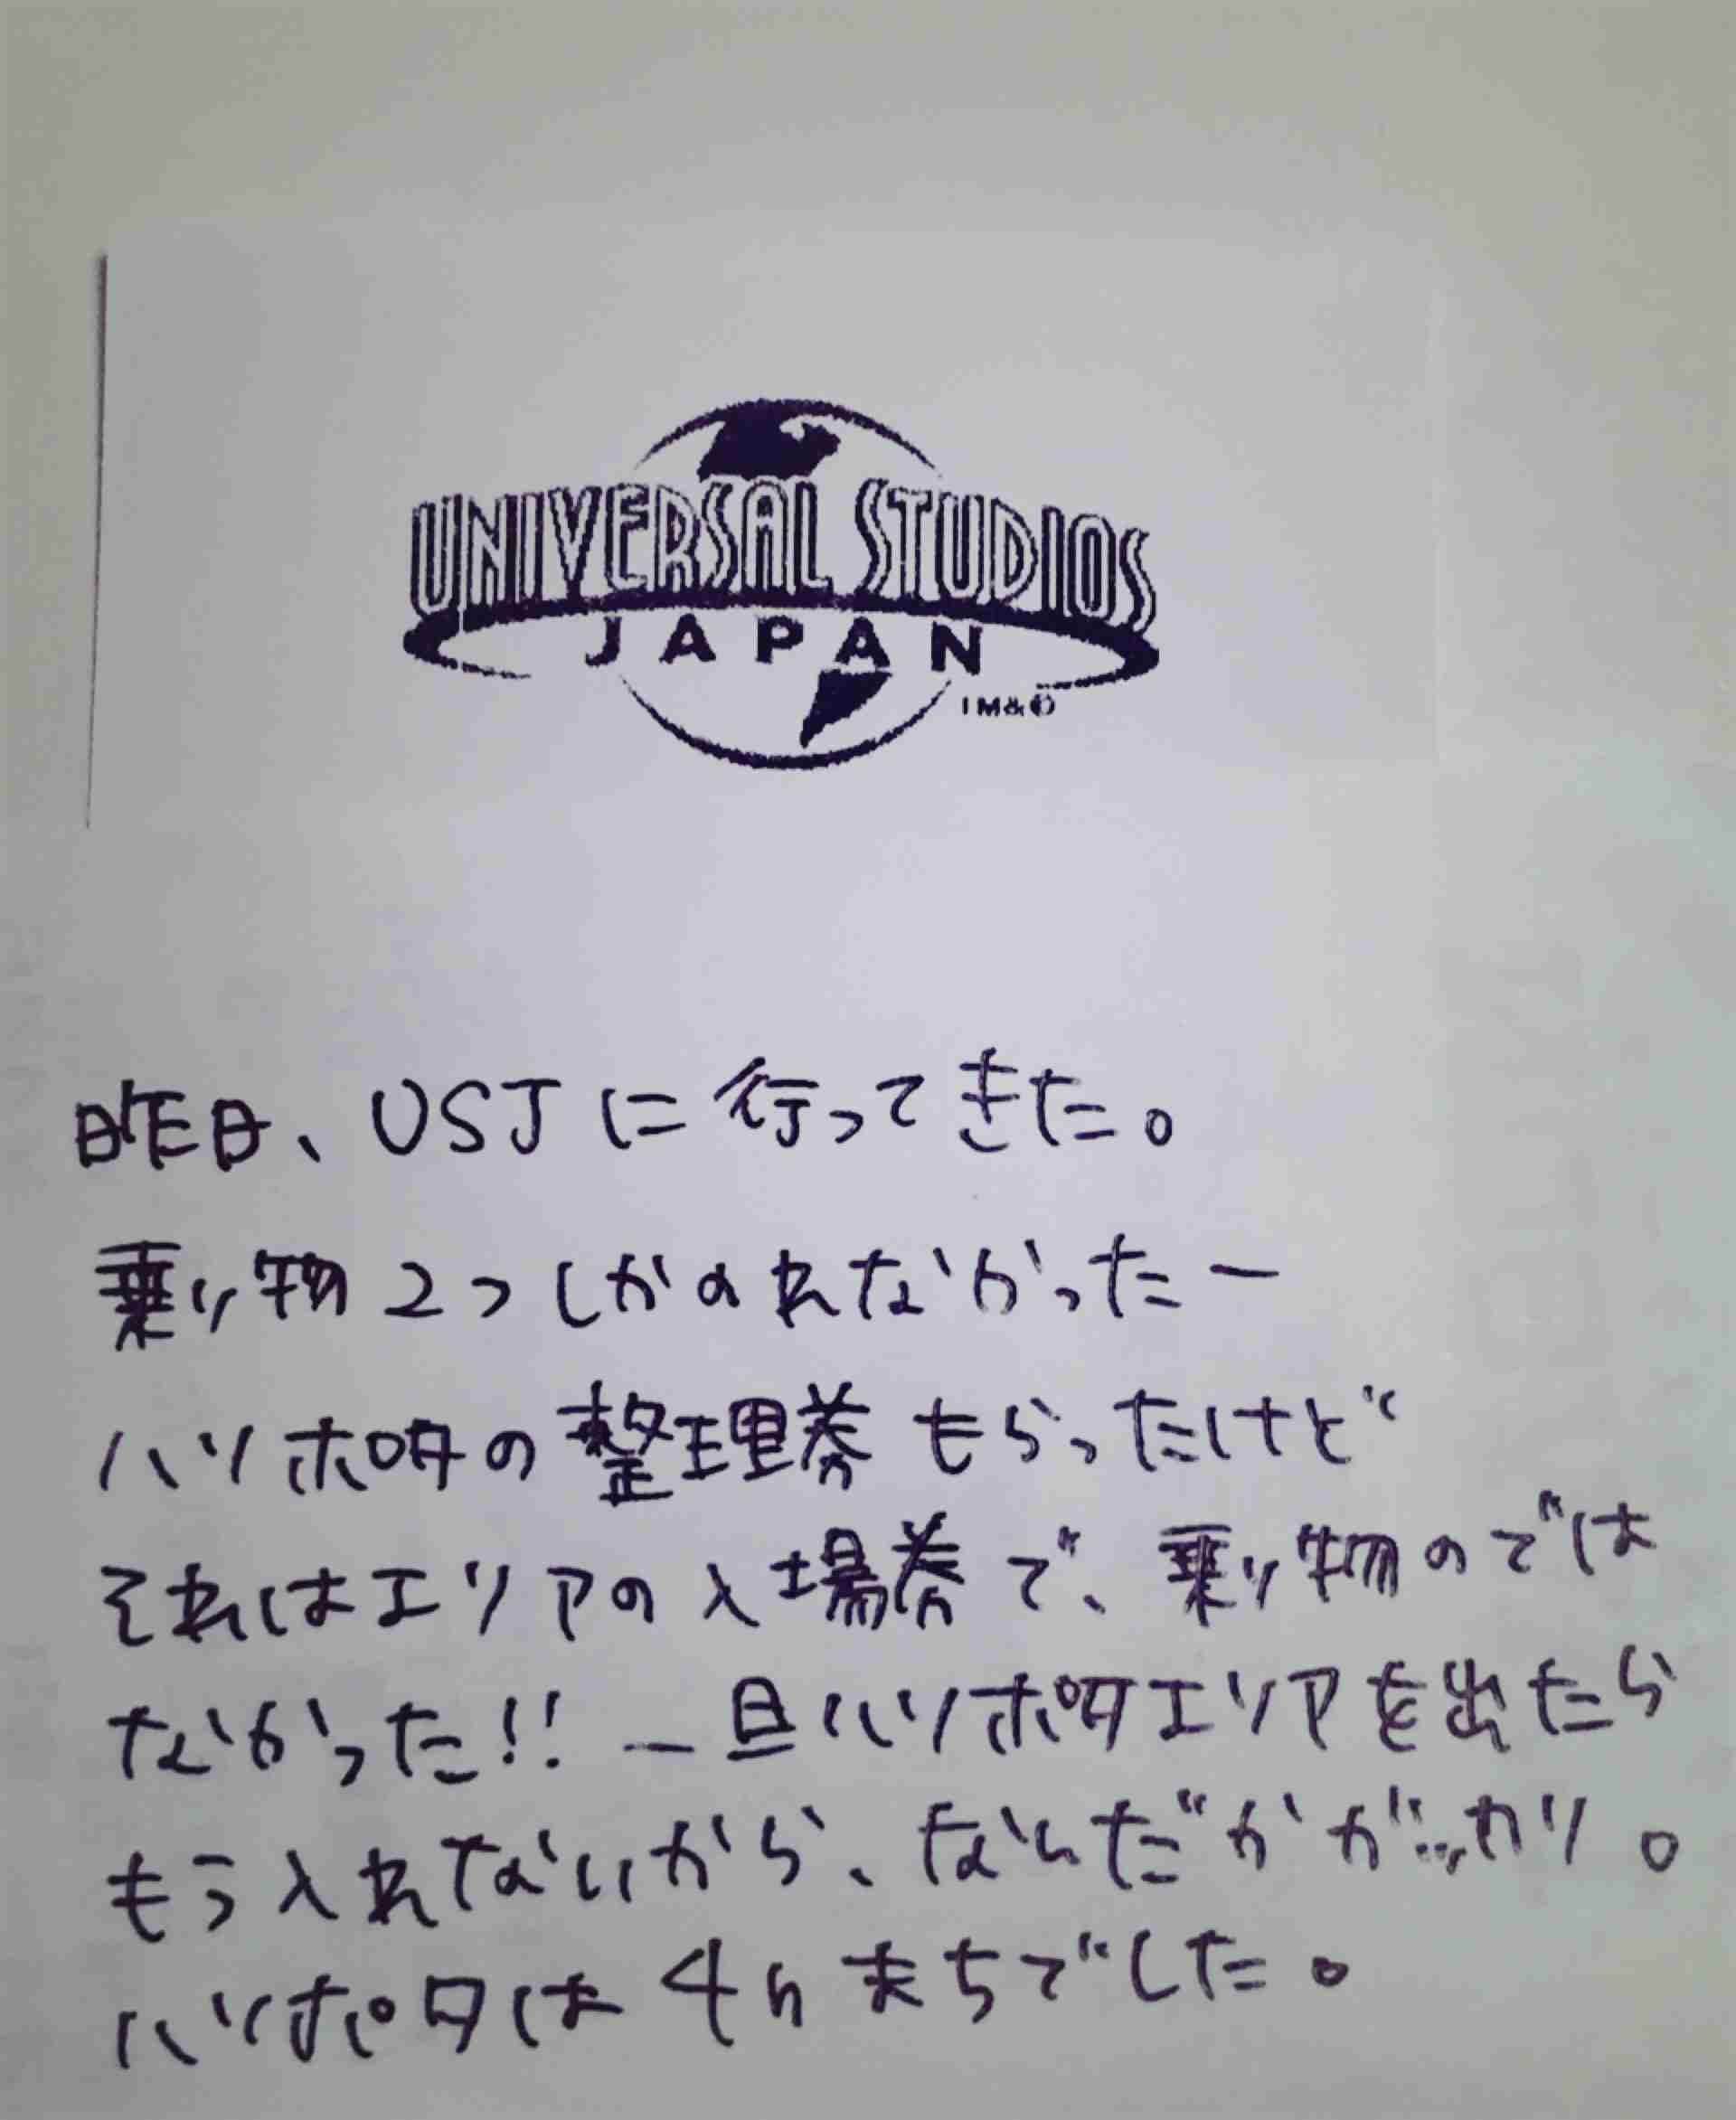 UNIVERSAL STUDIOS
JAPAN
TM&©
昨日、USJに行ってきた。
乗り物2つしかのれなかったー
ハリポタの整理券もらったけど
それはエリアの入場券で、乗り物のでは
なかった!!一旦ハリポタエリアを出たら
もう入れないから、なんだかがっかり。
ハリポタは4hまちでした。